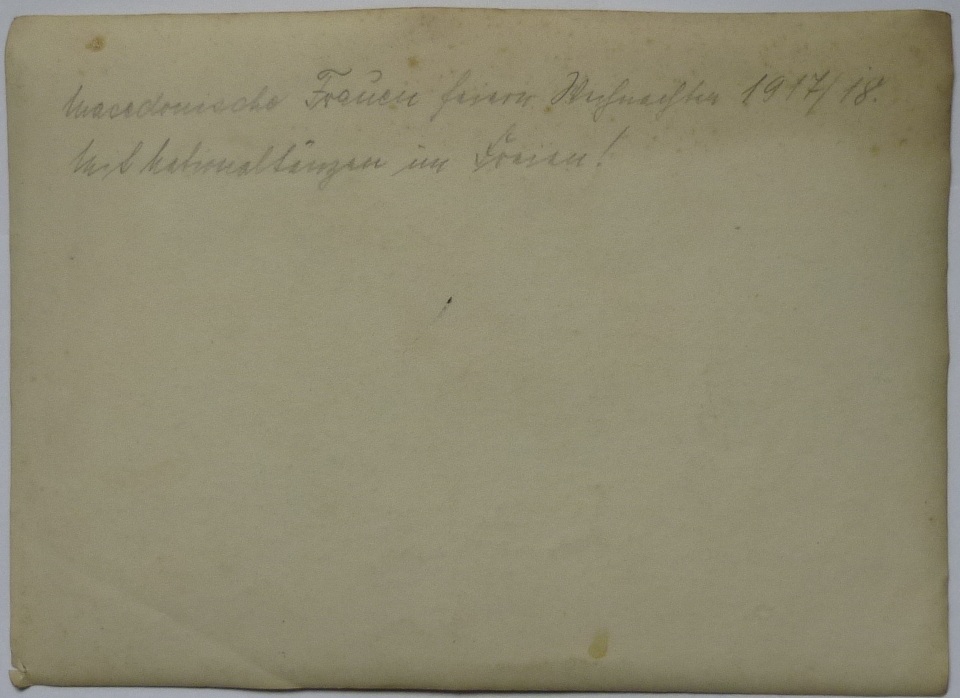 Macedonische Frauen feiern Weihnachten 1917/18.
Mit Nationaltänzen im Freien!